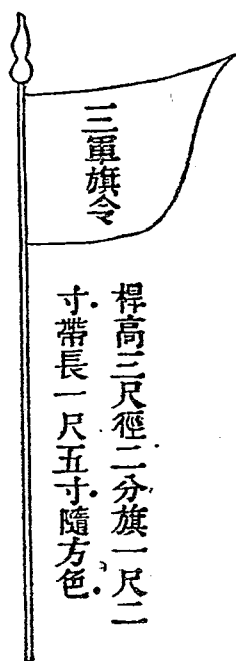 三軍旗令
桿高三尺徑二分旗一尺二
寸帶長一尺五寸隨方色